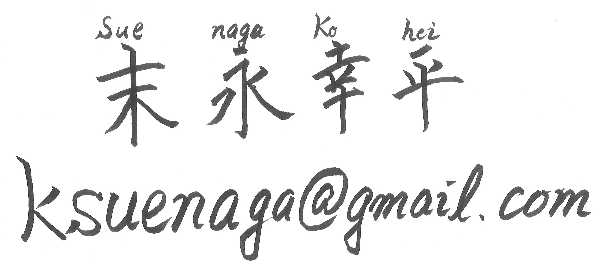 Sue naga Ko hei
末永幸平
ksuenaga@gmail.com